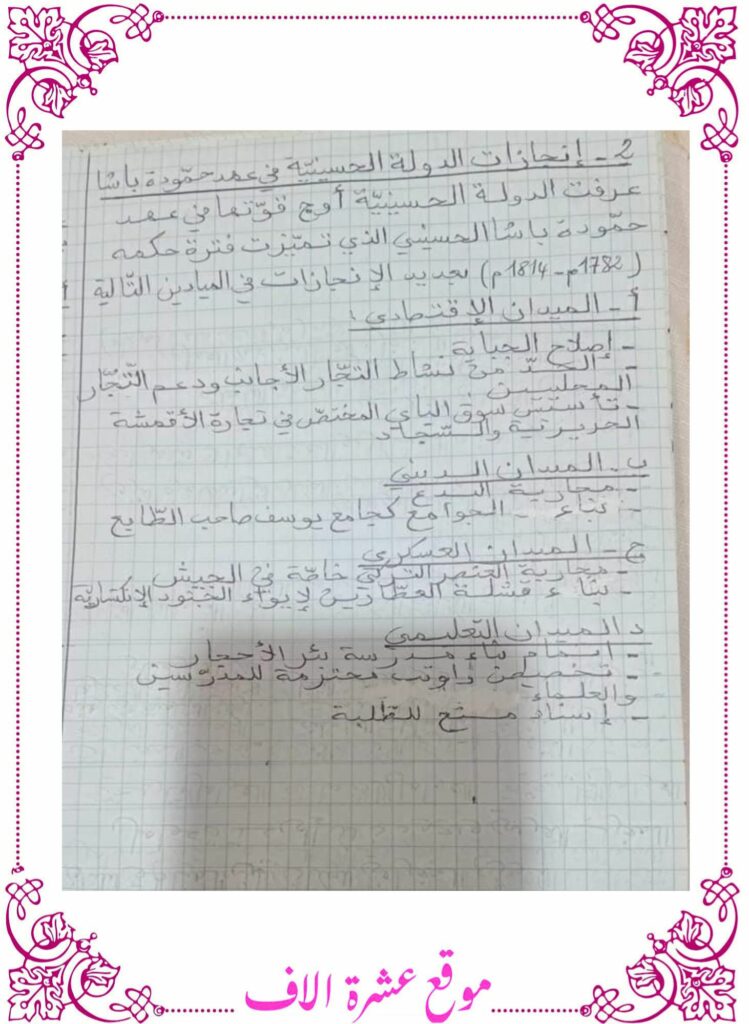 2 - إنجازات الدولة الحسينيّة في عهد حمّودة باشا
عرفت الدولة الحسينيّة أوج قوّتها في عهد
حمّودة باشا الحسيني الذي تميّزت فترة حكمه
(1782م - 1814م) بعديد الإنجازات في الميادين التّالية
أ - الميدان الإقتصادي :
- إصلاح الجباية
- الحدّ من نشاط التجّار الأجانب ودعم التّجّار
المحليين
- تأسيس سوق الباي المختصّ في تجارة الأقمشة
الحريرية والسّجاد
ب - الميدان الديني
- محاربة البدع
- بناء الجوامع كجامع يوسف صاحب الطّابع
ج - الميدان العسكري
- محاربة العنصر التركي خاصّة في الجيش
- بناء قشلة العطّارين لإيواء الجنود الإنكشاريّة
د الميدان التعليمي
- اتمام بناء مدرسة بئر الأحجار
- تخصيص رواتب محترمة للمدرّسين
والعلماء
- إسناد منح للطلبة
موقع عشرة الاف